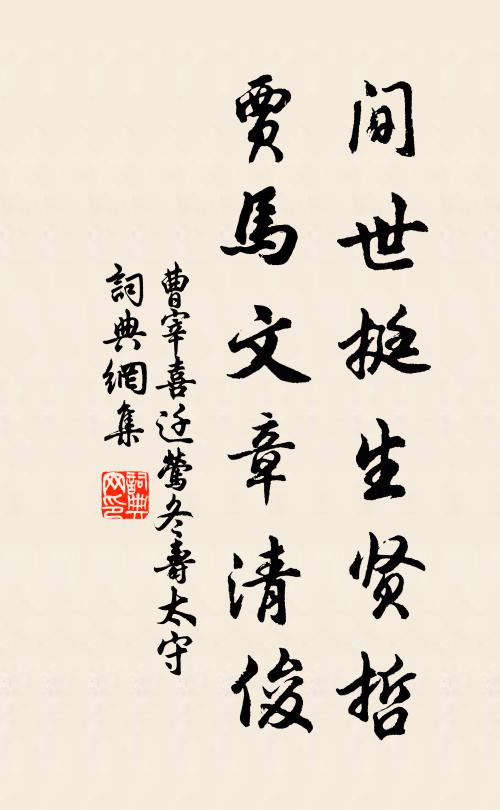 间世挺生贤哲
贾馬文章清俊
曹宰喜迁莺冬壽太守
詞典網集
詞典网印